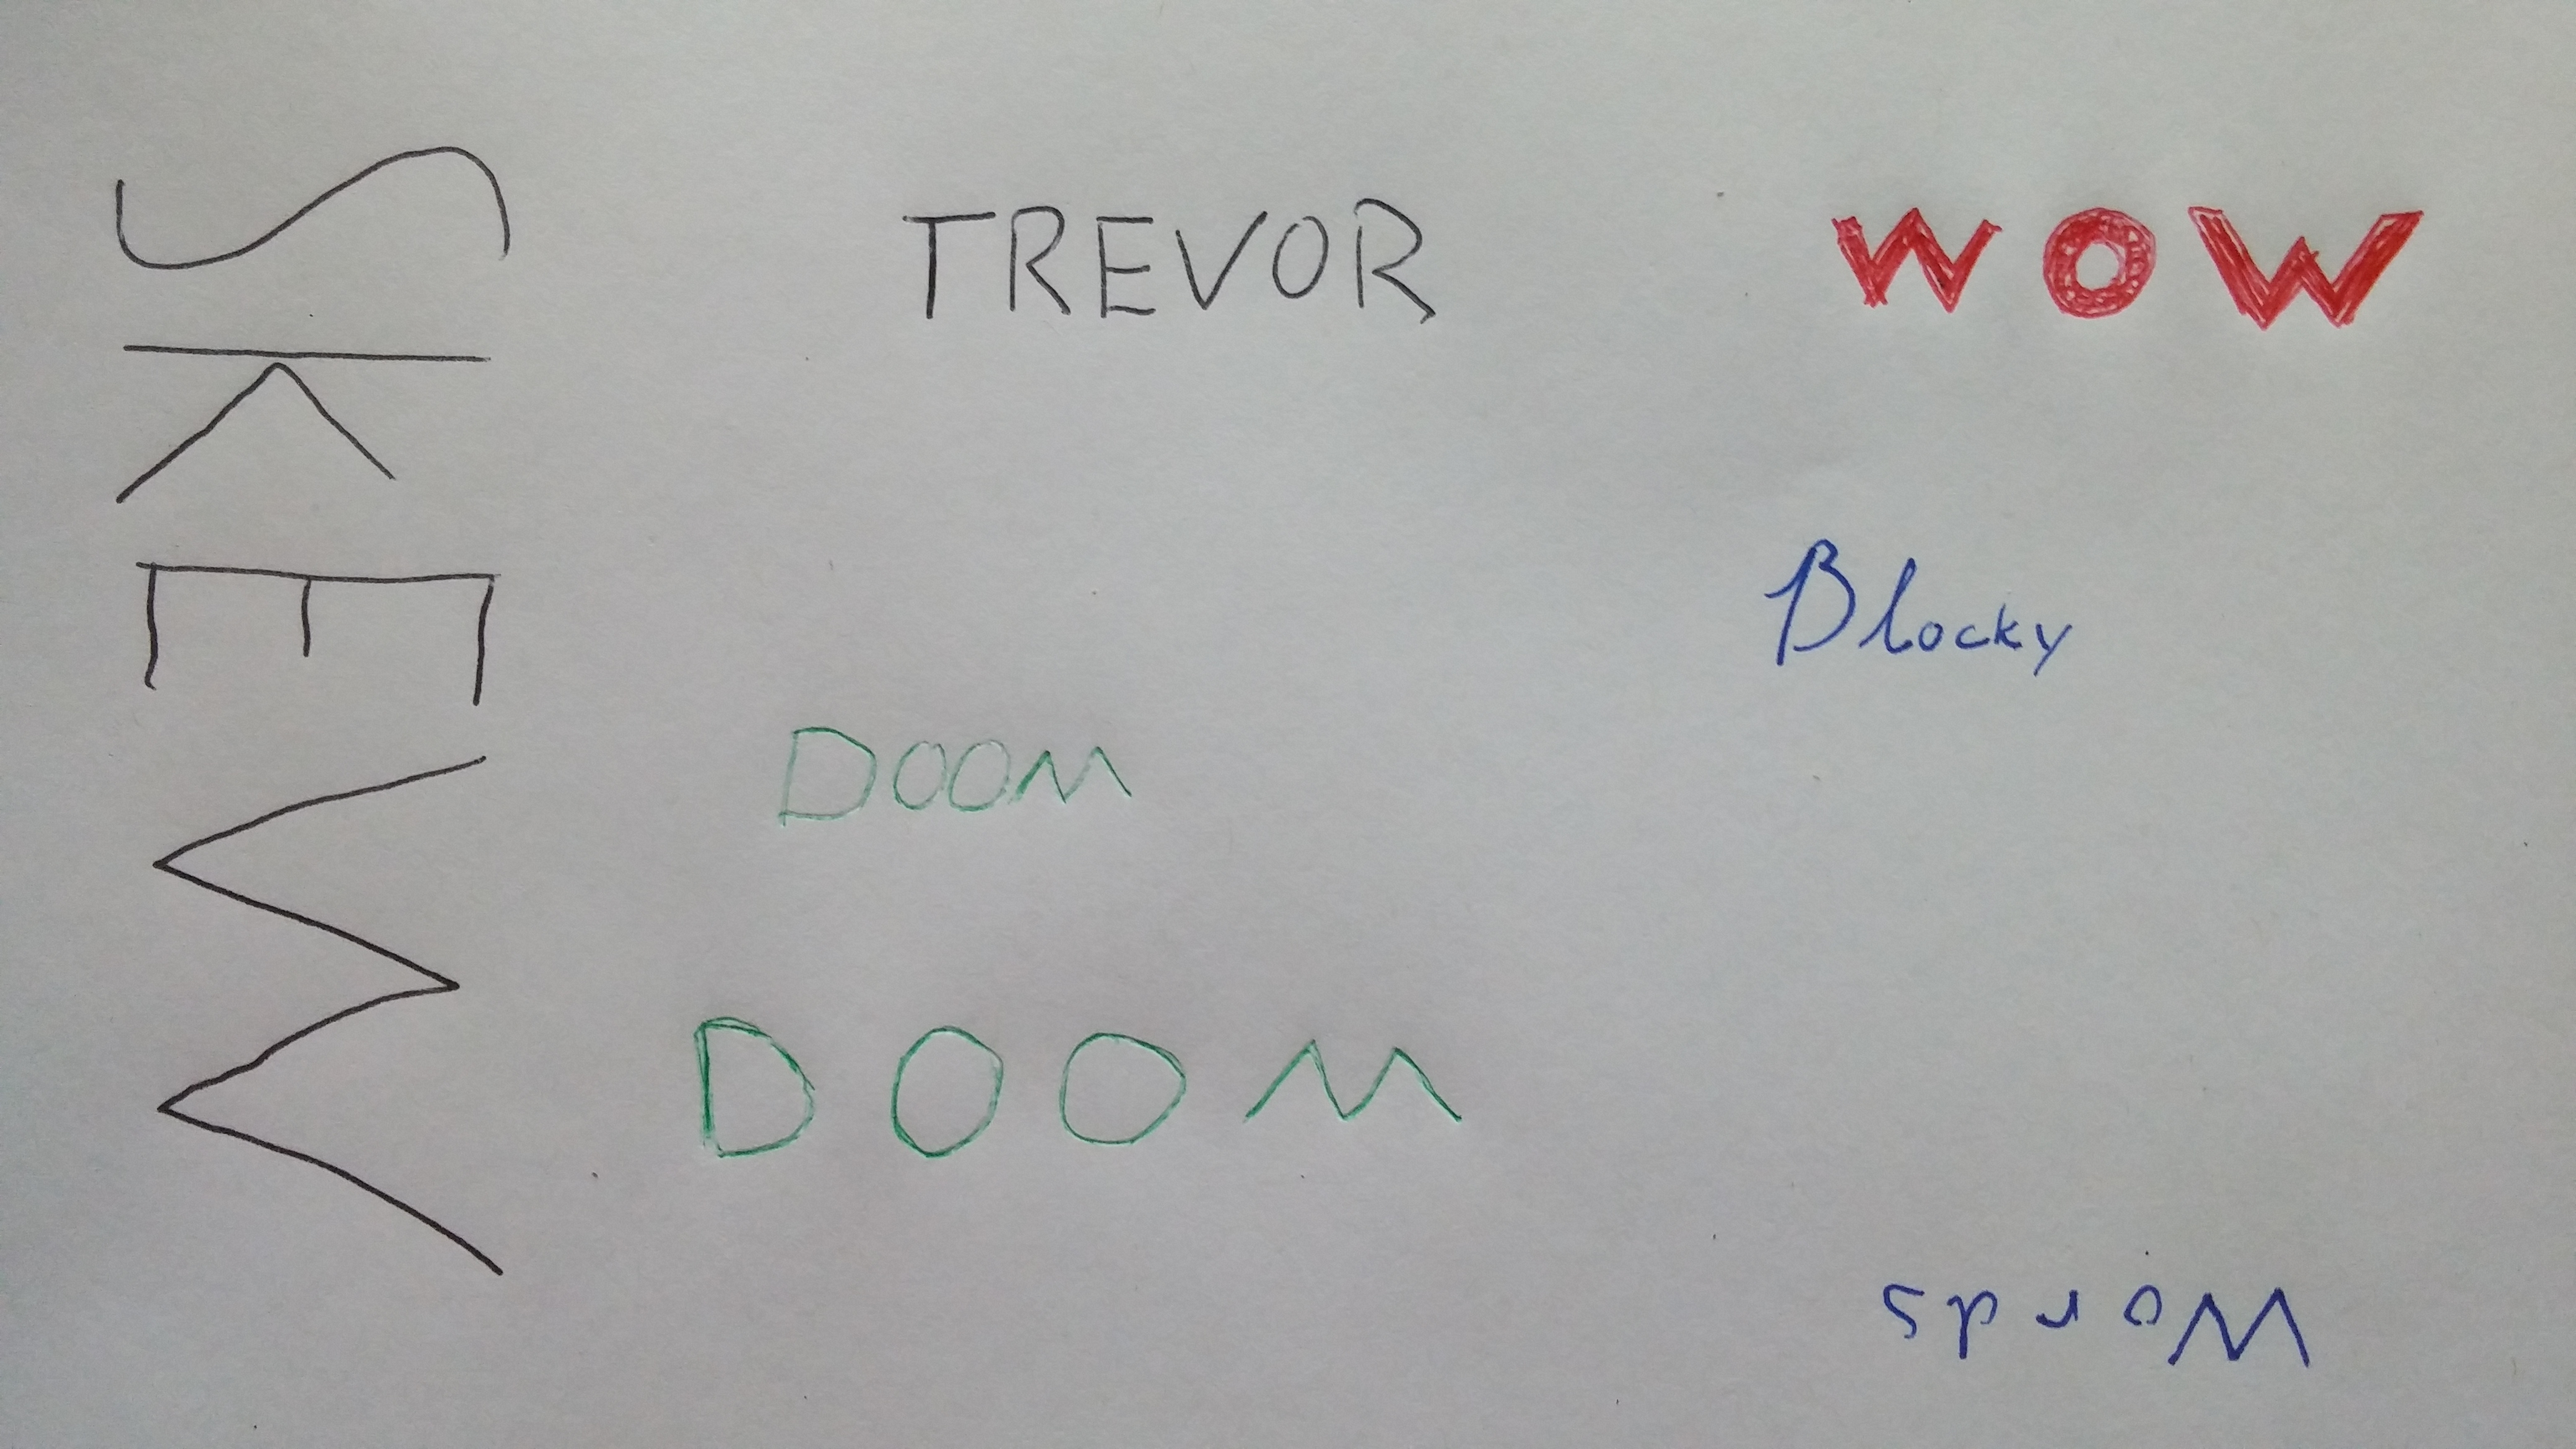 Words
DOOM
DOOM
Blocky
MOM
TREVOR
SKEW